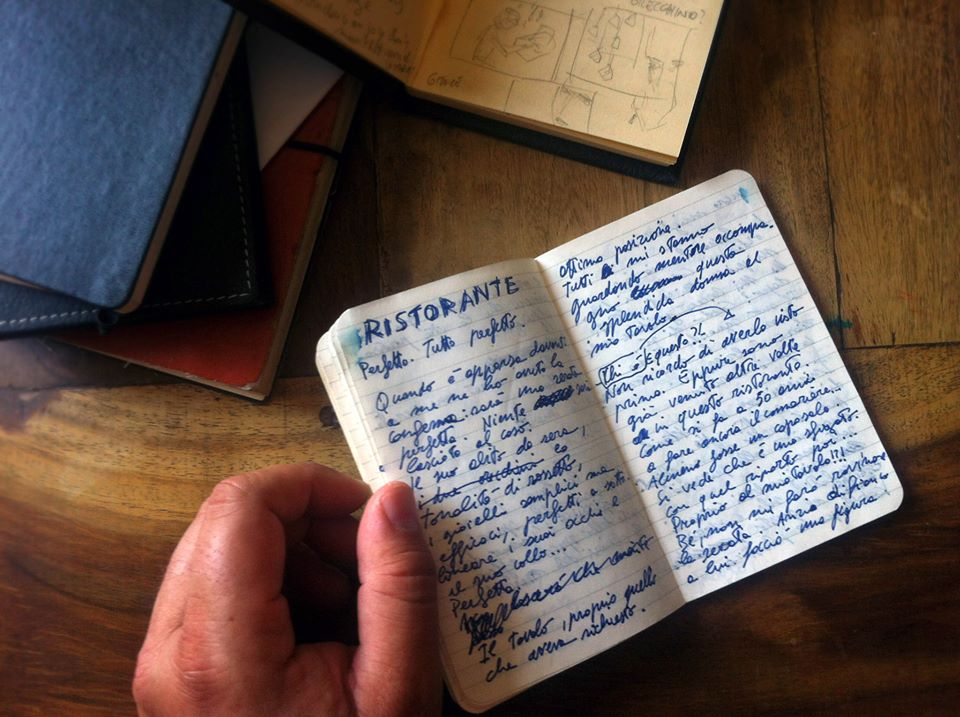 ORECCHINO?
Grace
RISTORANTE
Perfetto. Tutto perfetto.
Quando è apparsa davanti
a me ne ho avuto la
conferma: sarà una serata
perfetta. Niente sarà
lasciato al caso.
Il suo abito da sera,
la
tonalità di rossetto,
i gioielli semplici ma
efficaci, perfetti a sotto-
lineare i suoi occhi e
il suo collo...
Perfetta.
Il tavolo, proprio quello
che aveva richiesto.
ottima posizione.
Tutti mi stanno
guardando mentre accompa-
gno questa
splendida donna al
mio tavolo.
Chi è questo?!
Non ricordo di averlo visto
prima. Eppure sono
già venuto altre volte
in questo ristorante.
Come si fa a 50 anni
a fare ancora il cameriere...
Almeno fosse un caposala.
Si vede che è uno sfigato.
Con quel riporto poi...
Proprio al mio tavolo?!!
Be', non mi farò rovinare
la serata. Anzi di fianco
a lui faccio una figura!